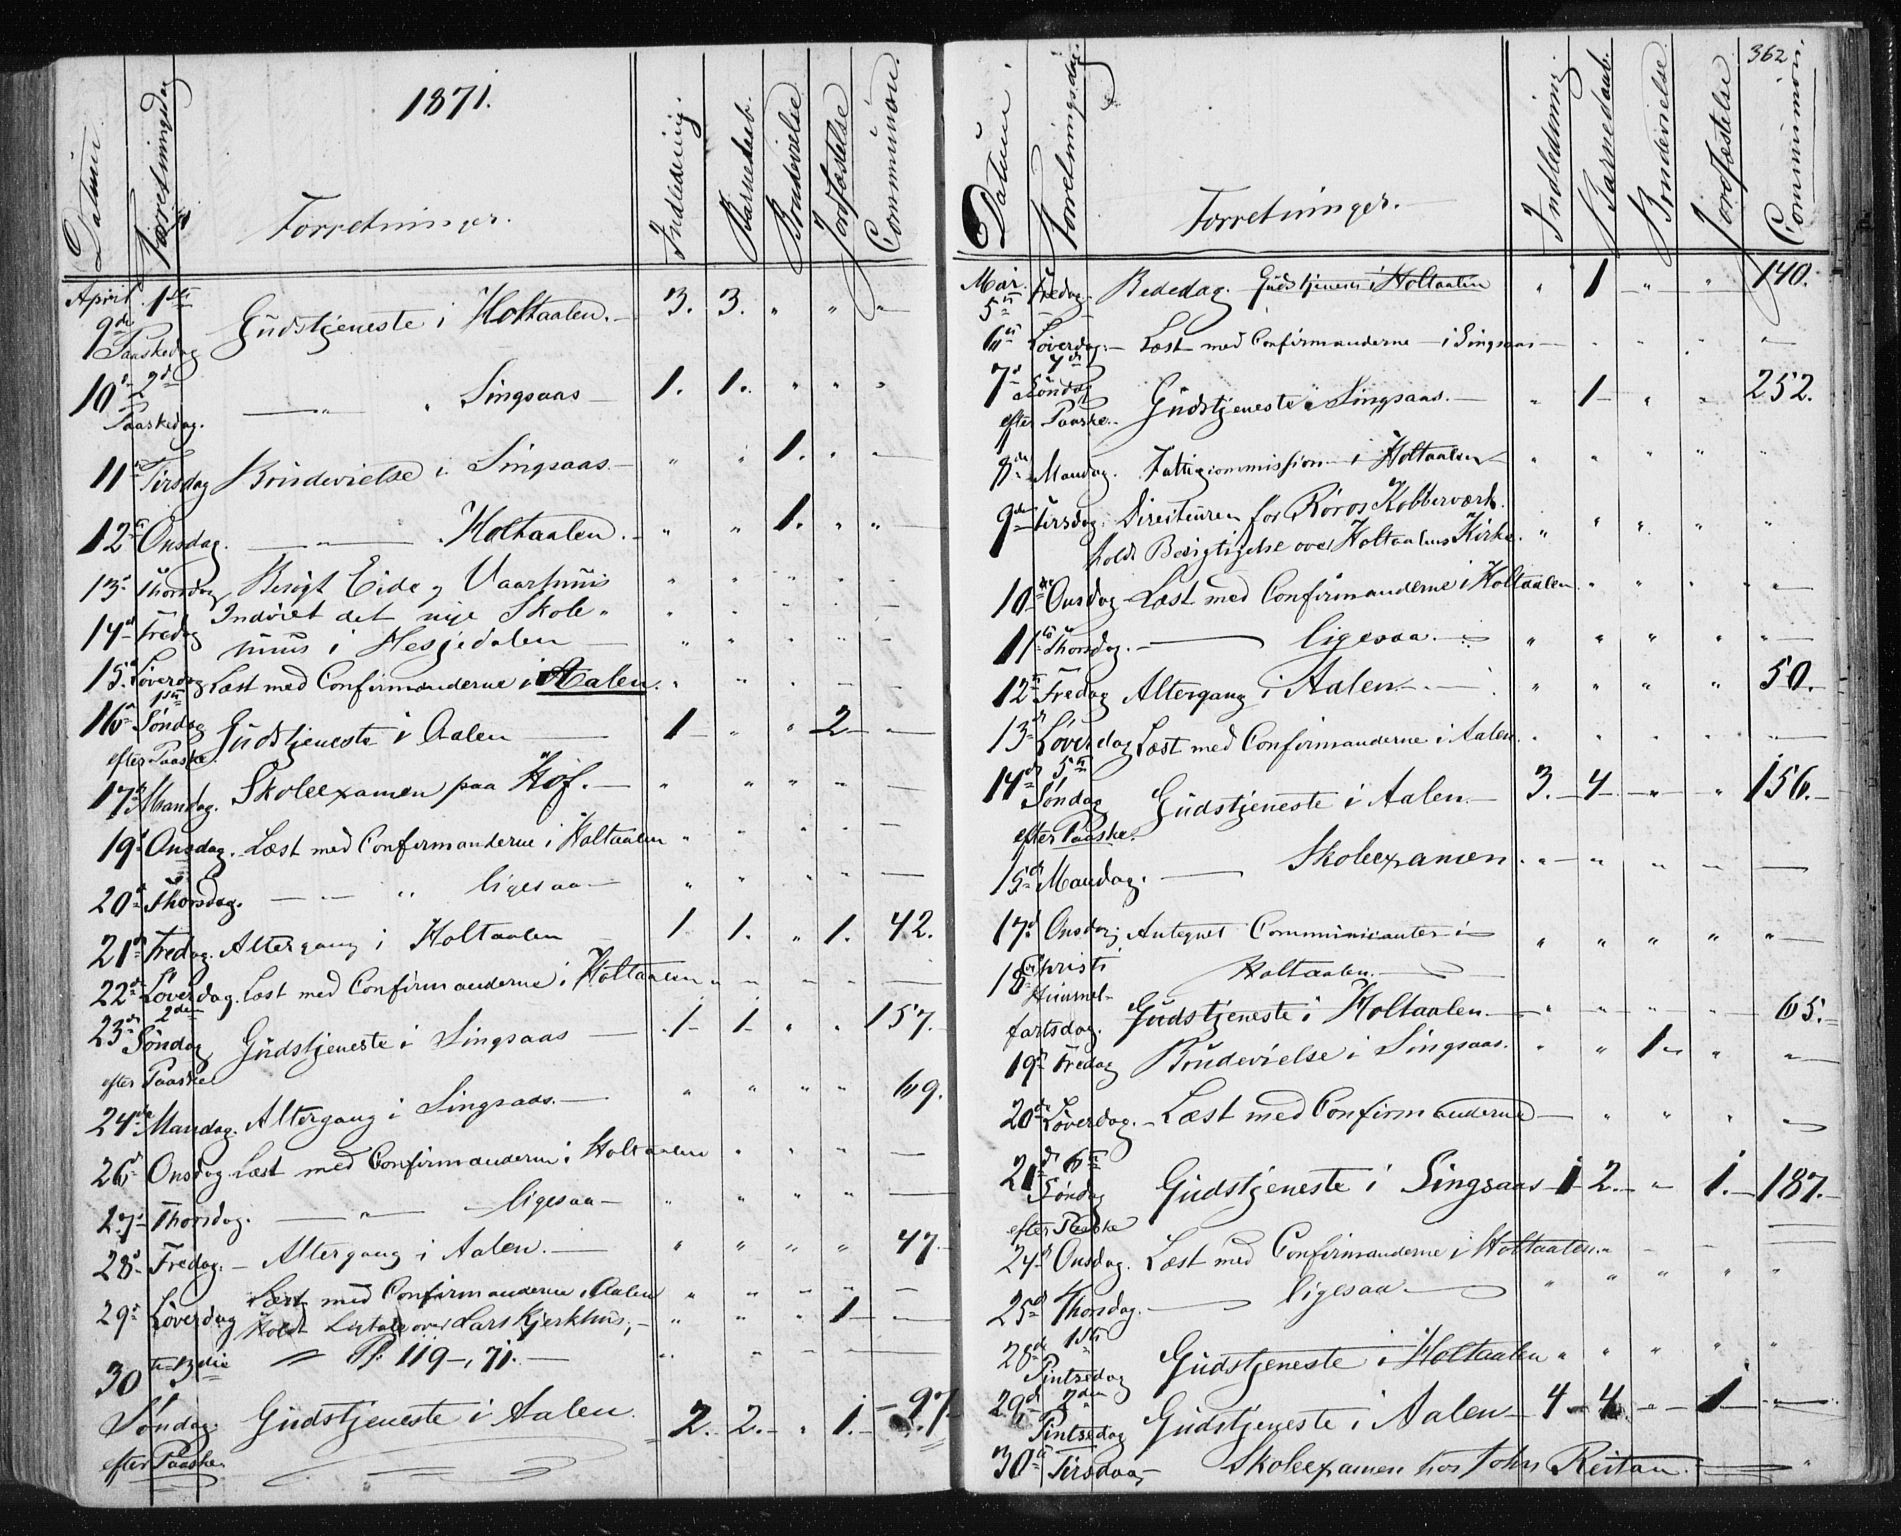 1871.
Datum Forretningsdag Forretninger. Indledning. Barnedaab. Brudevielse Jordfæstelse Communion.
April 1ste
9de Paaskedag Gudstjeneste i Holtaalen. 3. 3. " " "
10d 2d Paaskedag. — " — Singsaas — 1. 1. " " "
11te Tirsdag Brudevielse i Singsaas. — " " 1. " " —
12te Onsdag. — " — Holtaalen. — " " 1. " " —
13de Thorsdag Besøgt Eide og Vaarhuus " " " " "
14d Fredag Indviet det nye Skole- " " " " "
huus i Hesjedalen — " " " " "
15d Løverdag Læst med Confirmanderne i Aalen. " " " — —
16d 1ste Søndag efter Paaske. Gudstjeneste i Aalen — 1 — " " 2 — —
17d Mandag. Skoleexamen paa Hof. — " " " " —
19d Onsdag. Læst med Confirmanderne i Holtaalen " " " " —
20d Thorsdag. — " — ligesaa — " " " " —
21d Fredag. Altergang i Holtaalen 1 1. " 1. 42.
22d Løverdag. Læst med Confirmanderne i Holtaalen " — — — —
23d 2den Søndag efter Paaske Gudstjeneste i Singsaas — 1 — 1 — " " 157. —
24de Mandag. Altergang i Singsaas. — " " " " 69.
26d Onsdag Læst med Confirmanderne i Holtaalen " " " —
27d Thorsdag. — " — ligesaa — " " " " —
28d Fredag. — Altergang i Aalen. — " " " " 47. —
29d Løverdag Læst med Confirmanderne i Aalen " " " — —
Holdt Ligtale over Lars Kjerkhus, — " " " 1 — —
" P: 119 —, 71. —
30te 3die Søndag. efter Paaske Gudstjeneste i Aalen. 2. — 2. — " 1. — 97 —
362
Datum. Forretningsdag Forretninger. — Indledning. Barnedaab. Brudevielse Jordfæstelse Communion.
Mai.
5te Fredag. Bededag. Gudstjeneste i Holtaalen " 1 — " " 140.
6te Løverdag. — Læst med Confirmanderne — i Singsaas — " " " " —
7d 4d Søndag efter Paaske. Gudstjeneste i Singsaas. — " 1 — " " 252.
8de Mandag. Fattigcommission i Holtaalen — " " " " "
9de Tirsdag. Directeuren for Røros Kobberværk.
holdt Besigtigelse over Holtaalens Kirke. " " " " "
10de Onsdag Læst med Confirmanderne i Holtaalen " " " " —
11te Thorsdag. — ligesaa. — " " " " —
12te Fredag Altergang i Aalen. — " " " " 50. —
13d Løverdag Læst med Confirmanderne i Aalen. " " " " —
14d 5te Søndag efter Paaske. Gudstjeneste i Aalen. — 3. — 4 — " " 156. —
15d Mandag. — Skoleexamen. " — " " — —
17d Onsdag. Antegnet Communicanter i — " " " " " —
Holtaalen. —
18d Christi Himmelfartsdag. Gudstjeneste i Holtaalen. — " " " " 65. —
19d Fredag Brudevielse i Singsaas. " " 1 — " " —
20de Løverdag. — Læst med Confirmanderne — " " " " —
21d 6te Søndag efter Paaske Gudstjeneste i Singsaas — 1 — 2. — " 1. — 187. —
24d Onsdag. Læst med Confirmanderne i Holtaalen. " — — — —
25d Thorsdag. — ligesaa — " " " " "
28de 1ste Pintsedag Gudstjeneste i Holtaalen " " " " "
29d 2den Pintsedag Gudstjeneste i Aalen — 4 — 4. — " — 1 — —
30te Tirsdag — Skoleexamen hos John Reitan. —